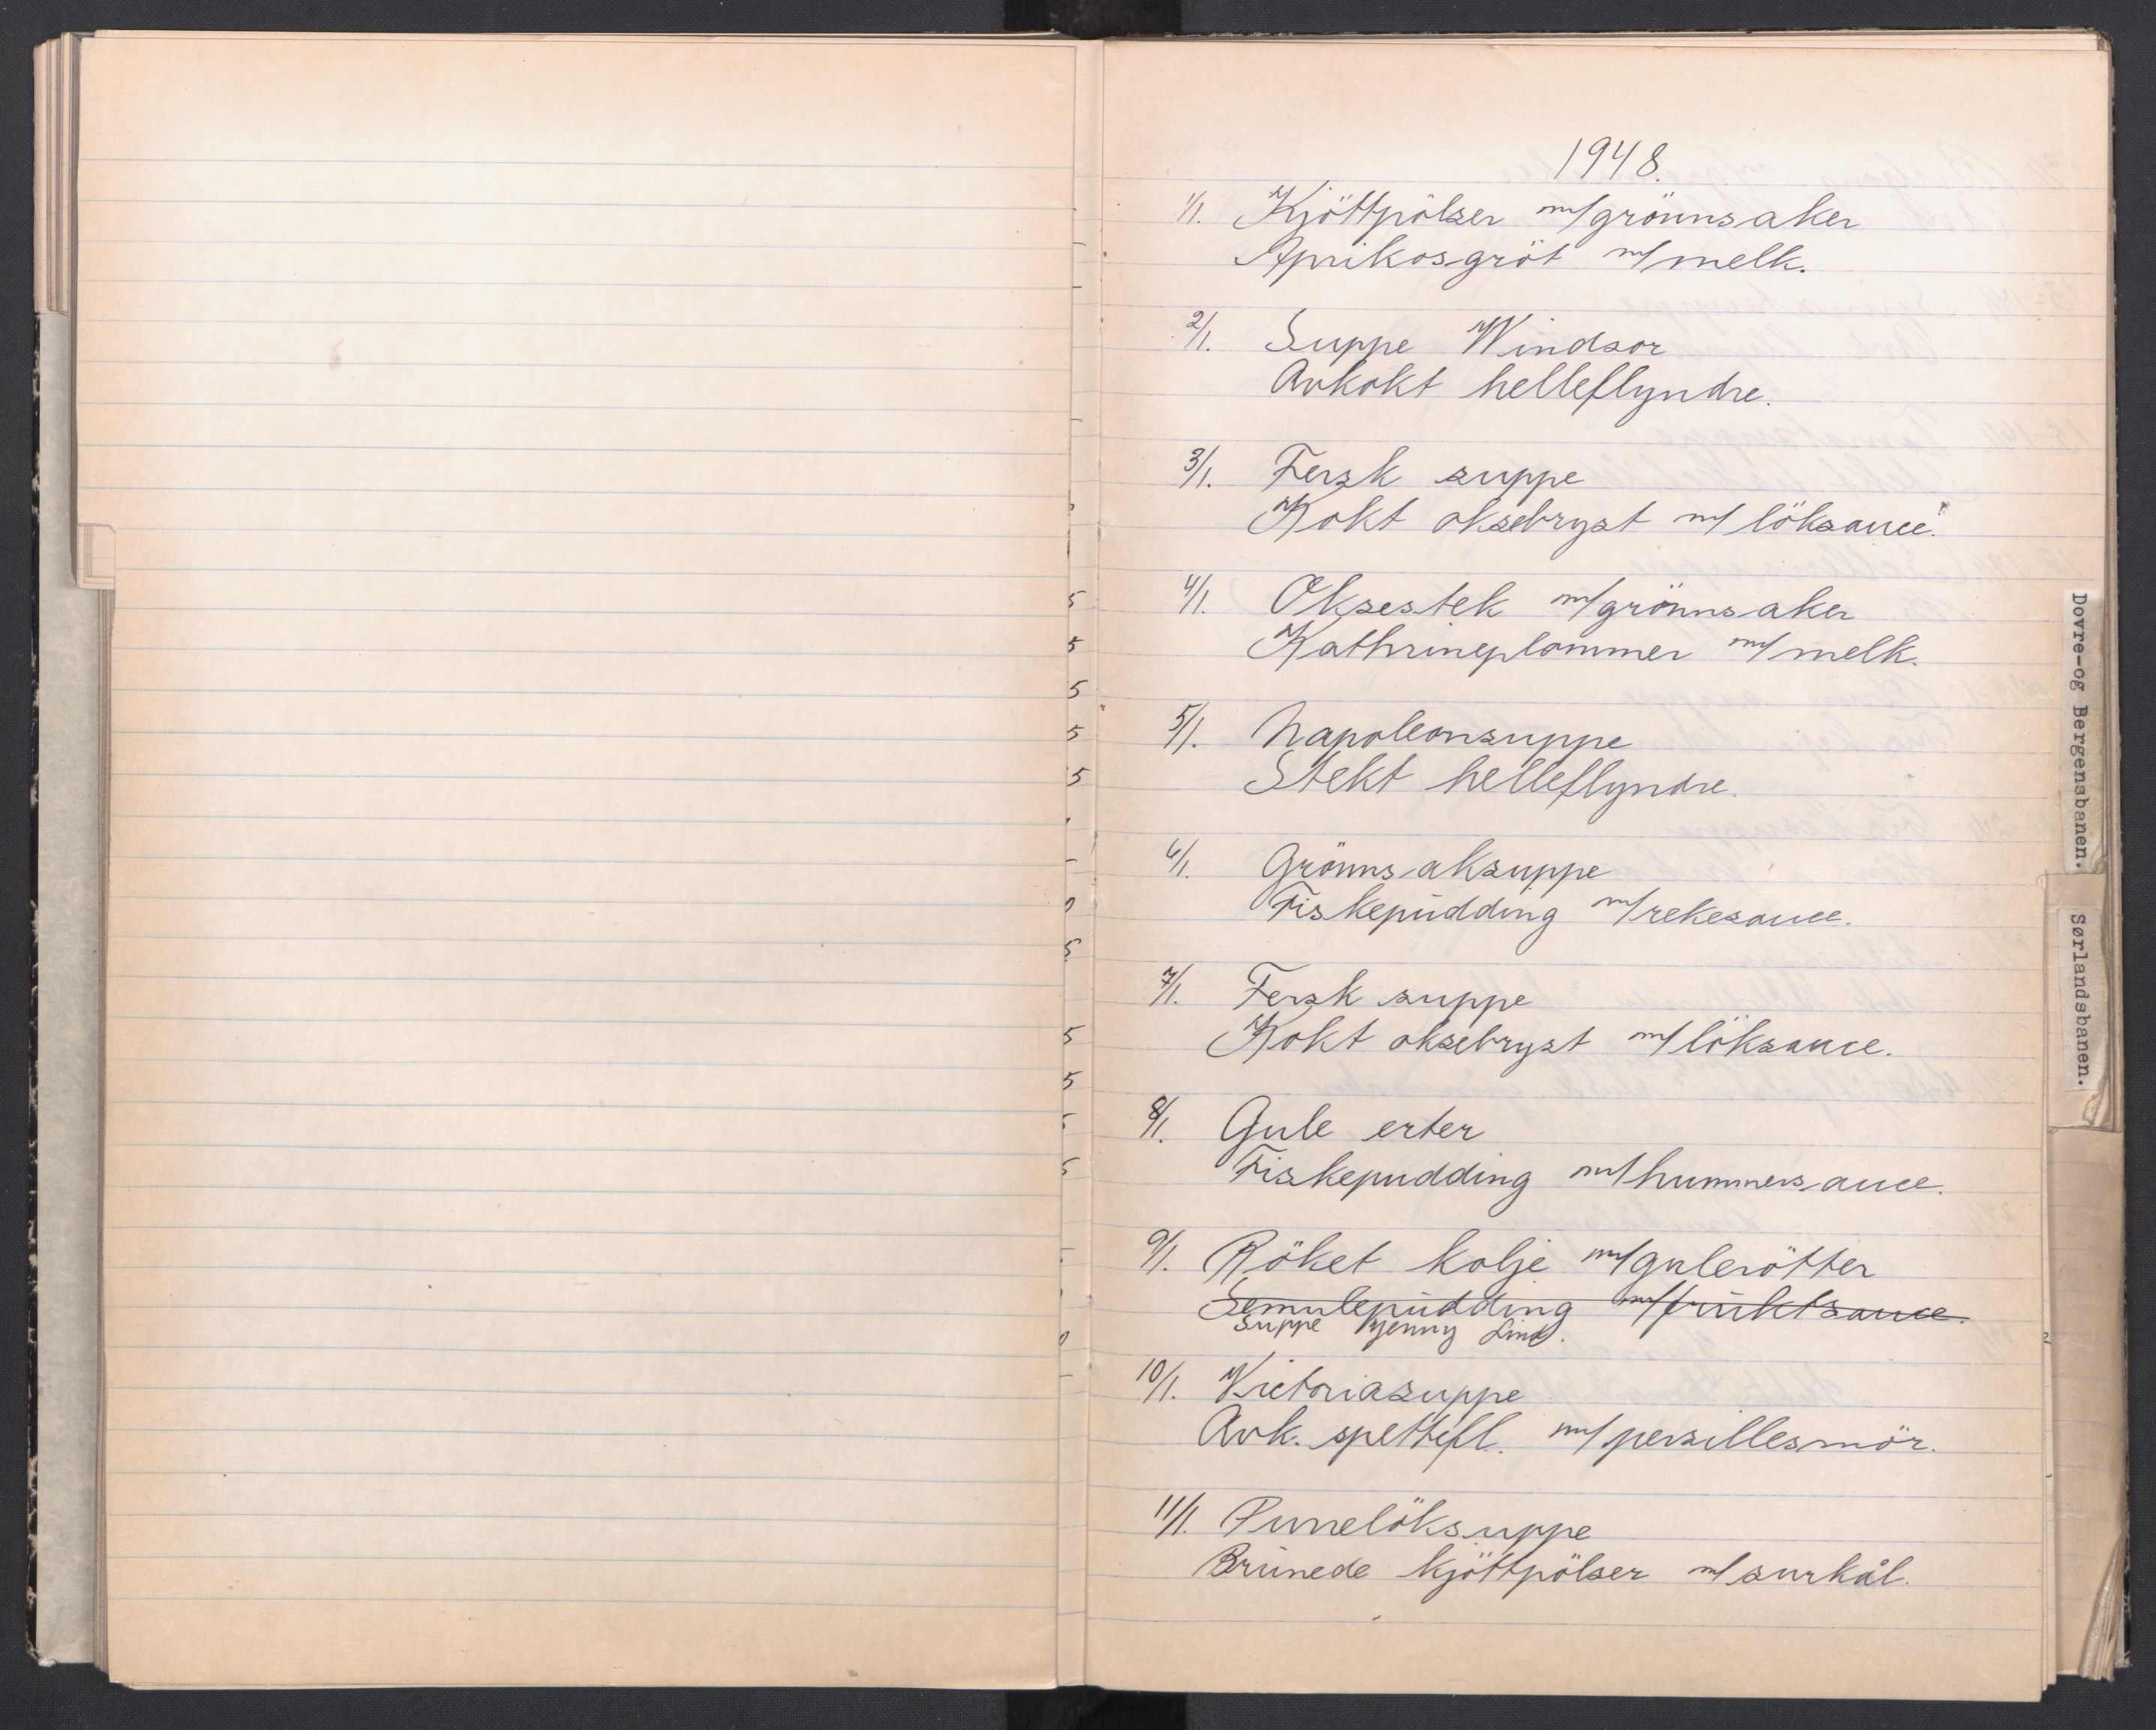 1948.
1/1. Kjöttpölser m/grönnsaker
Aprikosgröt m/melk.
2/1. Suppe Windsor
Avkokt helleflyndre.
3/1. Fersk suppe
Kokt oksebryst m/ löksauce.
4/1. Oksestek m/grönnsaker
Kathrineplommer m/melk.
5/1. Napoleonsuppe
Stekt helleflyndre.
6/1. Grönnsaksuppe
Fiskepudding m/rekesauce.
7/1. Fersk suppe
Kokt oksebryst m/löksauce.
8/1. Gule erter
Fiskepudding m/hummersauce.
9/1. Röket kolje m/gulerötter
Semulepudding m/fruktsauce.
Suppe Yenny Lind.
10/1. Victoriasuppe
Avk. spettefl. m/persillesmör.
11/1. Purrelöksuppe
Brunede kjöttpölser m/surkål.
Dovre-og Bergensbanen.
Sørlandsbanen.